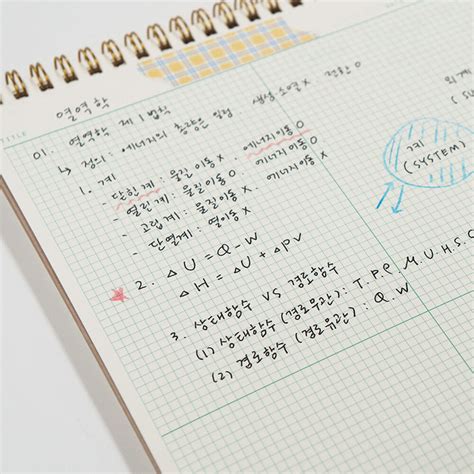 TITLE
열역학
01. 열역학 제 1법칙
↳ 정의 : 에너지의 총량은 일정 생성, 소멸 X 전환 O
1. 계
- 닫힌계 : 물질이동 X, 에너지이동 O
- 열린계 : 물질이동 O, 에너지이동 O
- 고립계 : 물질이동 X, 에너지이동 X
- 단열계 : 열이동 X.
2. △U = Q - W
△H = △U + △PV
3. 상태함수 VS 경로함수
(1) 상태함수 (경로무관) : T. P. ρ. M. U. H. S. G
(2) 경로함수 (경로유관) : Q. W
외계
(SU
계
(SYSTEM)